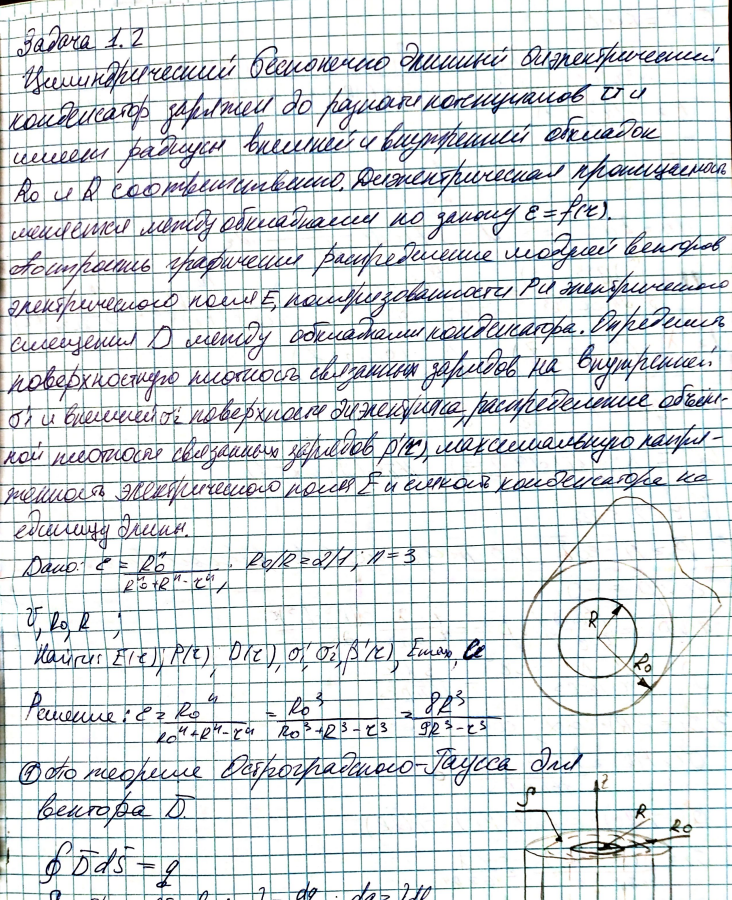 Задача 1.2
Цилиндрический бесконечно длинный диэлектрический
конденсатор заряжен до разности потенциалов U и
имеет радиусы внешней и внутренней обкладок
R₀ и R соответственно. Диэлектрическая проницаемость
меняется между обкладками по закону ε = f(r).
Построить графически распределение модулей векторов
электрического поля E, поляризованности P и электрического
смещения D между обкладками конденсатора. Определить
поверхностную плотность связанных зарядов на внутренней
σ₁' и внешней σ₂' поверхности диэлектрика, распределение объём-
ной плотности связанных зарядов ρ'(r), максимальную напря-
женность электрического поля E и ёмкость конденсатора на
единицу длины.
Дано: ε = R₀ⁿ / (R₀ⁿ + Rⁿ - rⁿ), R₀/R = 2/1; n = 3
U, R₀, R ;
Найти: E(r), P(r), D(r), σ₁', σ₂', ρ'(r), Emax,
R
R₀
Решение: ε = R₀ⁿ / (R₀ⁿ + Rⁿ - rⁿ) = R₀³ / (R₀³ + R³ - r³) = 8R³ / (9R³ - r³)
① По теореме Остроградского-Гаусса для
вектора D̄.
S
R
R₀
∮ D̄ dS̄ = q